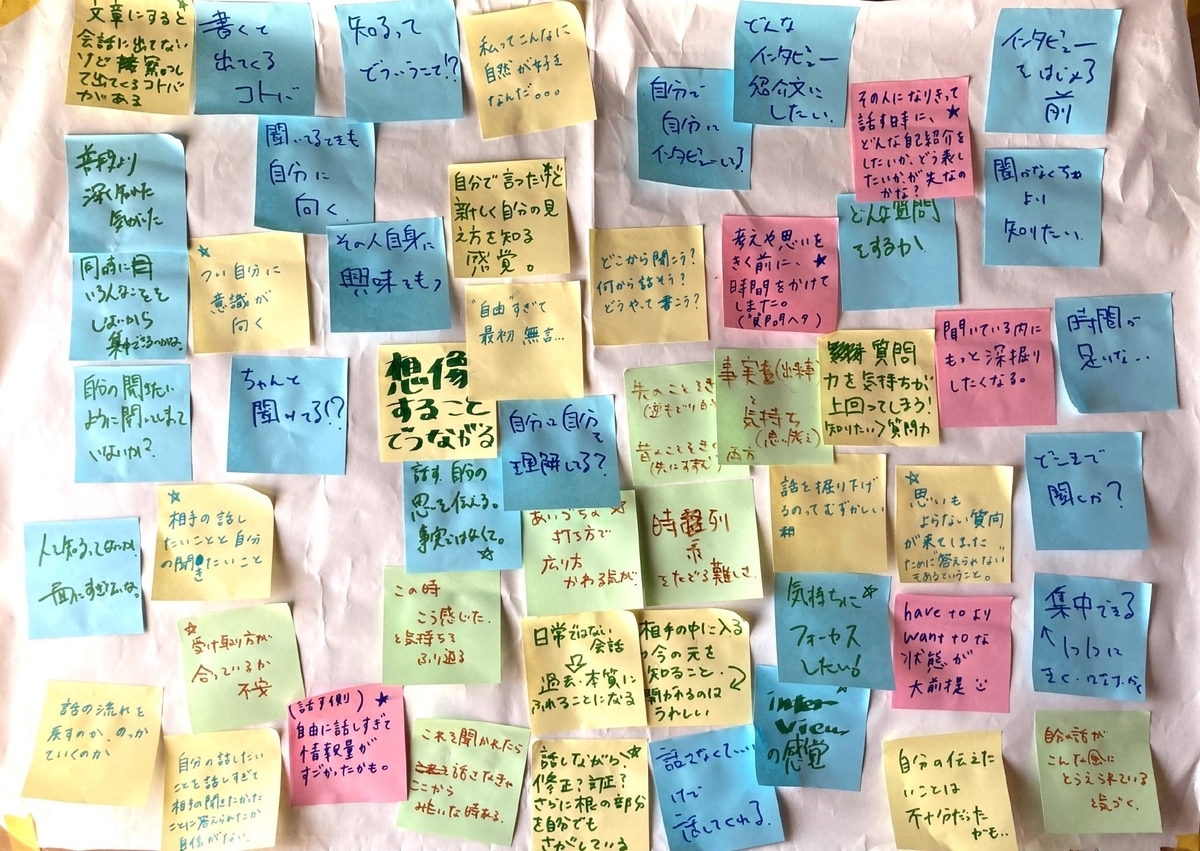 文章にすると
会話に出てない
けど
出てくるコトバ
がある
書くで
出てくる
コトバ
知るって
どういうこと!?
私ってこんなに
自然が好き
なんだ。。。
どんな
インタビュー
紹介文に
したい。
自分で
自分に
インタビューしてる
その人になりきって
話す時に、
どんな自己紹介を
したいか、どう表し
たいか、が先なの
かな?
インタビュー
をはじめる
前
聞かなくちゃ
より
知りたい、
普段より
深く知れた
気がした
聞いてるときも
自分に
向く
その人自身に
興味をもつ
自分で言ったけど
新しく自分の見
え方を知る
感覚。
どこから聞こう?
何から話そう?
どうやって書こう?
考えや思いを
きく前に、
時間をかけて
しまた。
(質問ヘタ)
どんな質問
をするか
同時に
いろんなことを
しないから
集中できるのかな。
つい自分に
意識が
向く
"自由"すぎて
最初 無言...
時間が
足りない...
聞いている内に
もっと深掘り
したくなる。
質問
力を気持ちが
上回ってしまう!
知りたい>質問力
事実(出来事)
と
気持ち
(思い、考え)
両方
先のことをき
昔のことをきく
自分の聞きたい
ように聞いてしまって
いないか?
ちゃんと
聞けてる!?
想像
すること
でつながる
自分は自分を
理解してる?
話す、自分の
思を伝える。
事実ではなくて。
どこまで
聞くか?
話を掘り下げ
るのってむずかしい
思いも
よらない質問
が来てしまった
ために答えられない
もあるということ。
相手の話し
たいことと自分
の聞きたいこと
あいづちの
打ち方で
広り方
かわる気が、
時系列
をたどる難しさ
人を知るってなかなか
一面にすぎないな。
この時
こう感じた
と気持ちを
ふり返る
気持ちに
フォーカス
したい!
have to より
want to な
状態が
大前提
集中できる
↑
1つ1つに
きく・
受け取り方が
合っているか
不安
日常ではない
会話
⇩
過去・本質に
ふれることになる
相手の中に入る
今の元を
知ること。
聞かれるのは
うれしい
inter
View
の感覚
話の流れを
戻すのか、のっか
ていくのか
自分の話したい
ことを話しすぎて
相手の聞きたかった
ことに答えられたか
自信がない。
(話す側)
自由に話しすぎて
情報量が
すごかったかも。
これを聞かれたら
話さなきゃ
ここから
みたいな時ある。
話しながら
修正?訂正?
さらに根の部分
を自分でも
さがしている
話さなくて...
けど
話してくれる。
自分の伝えた
いことは
不十分だった
かも..
自分の話が
こんな風に
とらえられている
と気づく。